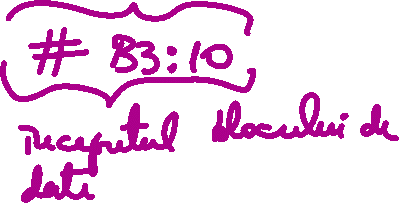 # B3:10
Inceputul blocului de
date